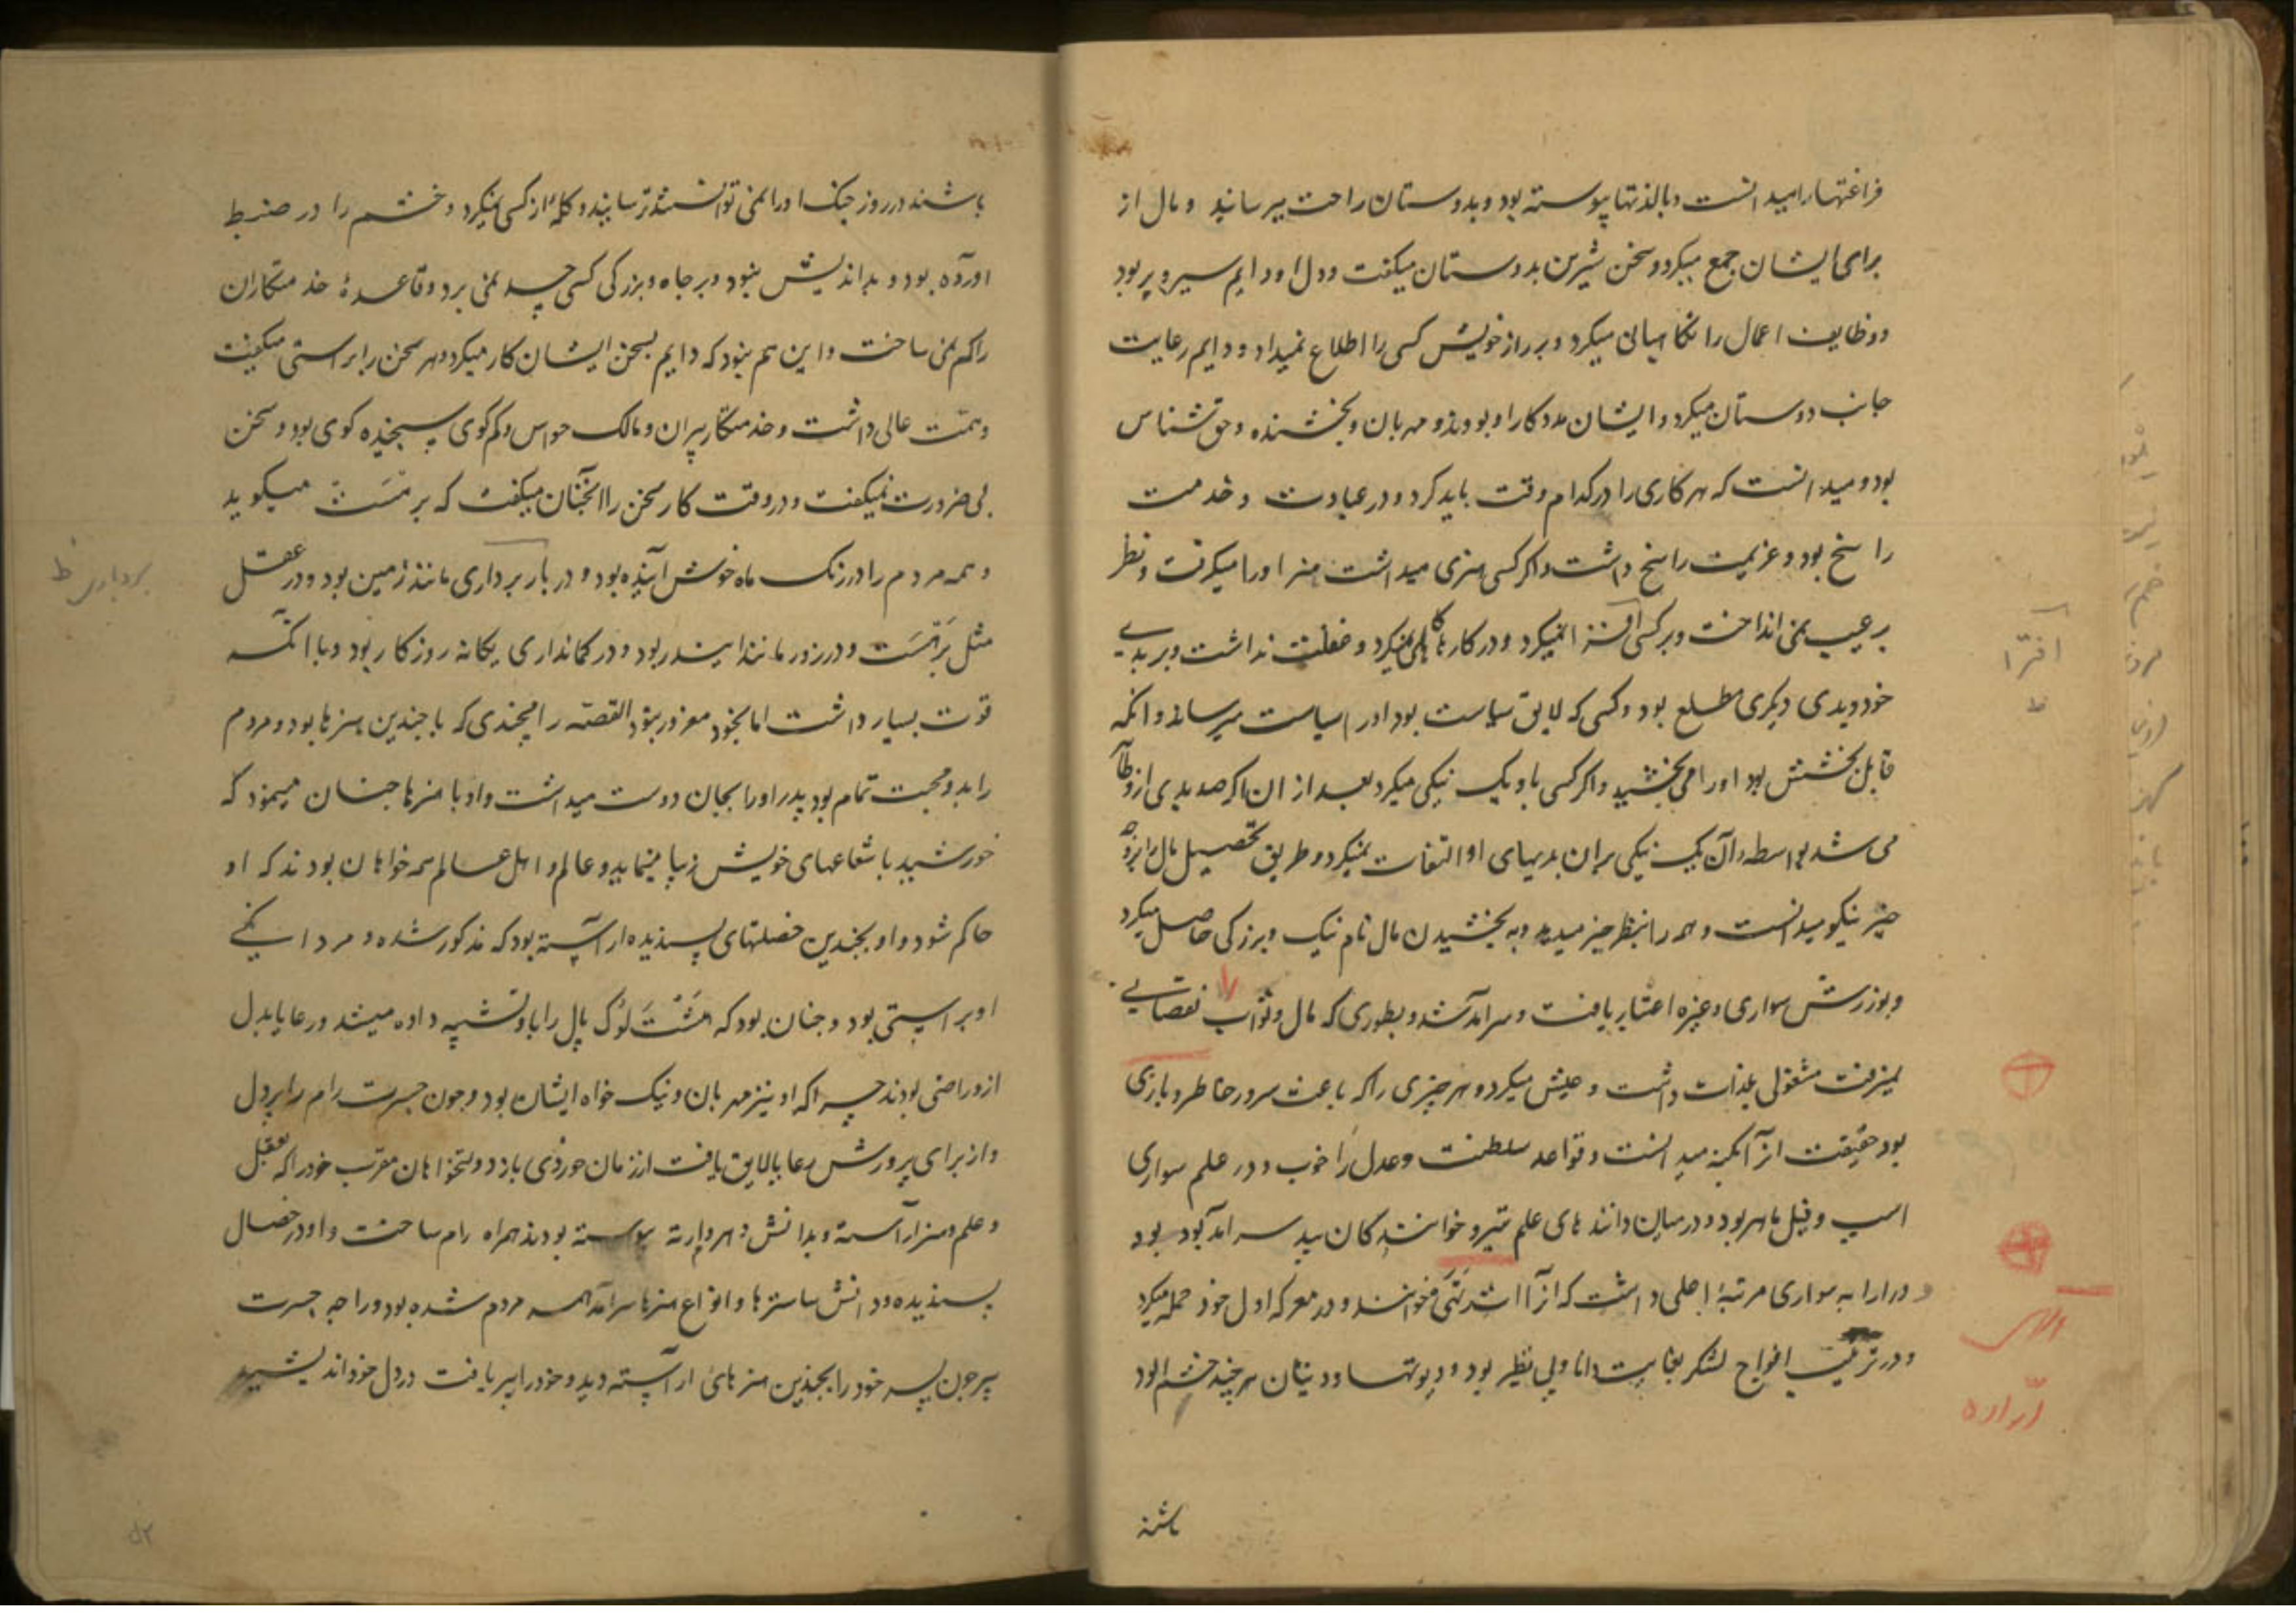 فراغتها را میدانست و با لذتها پیوسته بود و بدوستان راحت میرسانید و مال از
برای ایشان جمع میکرد و سخن شیرین بدوستان میکفت و دل او دایم سیر و پر بود
و وظایف اعمال را نکاهبانی میکرد و بر راز خویش کسی را اطلاع نمیداد و دایم رعایت
جانب دوستان میکرد و ایشان مددکار او بودند و مهربان و بخشنده و حق شناس
بود و میدانست که هر کاری را در کدام وقت باید کرد و در عبادت و خدمت
راسخ بود و عزیمت راسخ داشت و اکر کسی هنری میداشت هنر او را میکرفت و نظر
بر عیب نمی انداخت و بر کسی افترا نمیکرد و در کارها کاهلی نمیکرد و غفلت نداشت و بر بدی
خود و بدی دیکری مطلع بود و کسی که لایق سیاست بود او را سیاست میرساند و انکه
قابل بخشش بود او را می بخشید و اکر کسی باو یک نیکی میکرد بعد از ان اکر صد بدی ازو ظاهر
می شد بواسطه آن یک نیکی بران بدیهای او التفات نمیکرد و طریق تحصیل مال را بوجه
خیر نیکو میدانست و همه را بنظر خیر میدید و به بخشیدن مال نام نیک و بزرکی حاصل میکرد
و بورزش سواری و غیره اعتبار یافت و سرآمد شد و بطوری که مال و ثواب نقصانی
نمیرفت مشغولی بلذات داشت و عیش میکرد و هر چیزی را که باعث سرور خاطر و بازی
بود حقیقت انرا میدانست و قواعد سلطنت و عدل را خوب و در علم سواری
اسپ و فیل ماهر بود و در میان دانندهای علم تیر و خوانندکان بید سرآمد بود
و در ارابه سواری مرتبهٔ اعلی داشت که انرا میخوانند و در معرکه اول خود حمله میکرد
و در ترتیب افواج لشکر بغایت دانا و بی نظیر بود و دیوتها و دیتان هر چند خشم الود
باشند
باشند در روز جنک او را نمی توانستند ترسانید و کله از کسی نمیکرد و خشم را در ضبط
اورده بود و بداندیش نبود و بر جاه و بزرکی کسی حسد نمی برد و قاعدهٔ خدمتکاران
را کم نمی ساخت و این هم نبود که دایم بسخن ایشان کار میکرد و هر سخن را براستی میکفت
و همت عالی داشت و خدمتکار پیران و مالک حواس و کم کوی و سنجیده کوی بود و سخن
بی ضرورت نمیکفت و در وقت کار سخن را انچنان میکفت که برهسپت میکوید
و همه مردم را در رنک ماه خوش آینده بود و در بار برداری مانند زمین بود و در عقل
بردباری ظ
مثل برهسپت و در زور مانند ایندر بود و در کمانداری یکانه روزکار بود و با آنکه
قوت بسیار داشت اما بخود مغرور نبود القصه رامچندی که با چندین هنرها بود و مردم
را بدو محبت تمام بود پدر او را بجان دوست میداشت و او با هنرها چنان مینمود که
خورشید با شعاعهای خویش زیبا مینماید و عالم و اهل عالم همه خواهان بودند که او
حاکم شود و او بچندین خصلتهای پسندیده اراسته بود که مذکور شده و مردانکی
او براستی بود و چنان بود که لوک پال را باو تشبیه داده میشد و رعایا بدل
ازو راضی بودند چرا که او نیز مهربان و نیک خواه ایشان بود و چون جسرت رام را بر دل
و از برای پرورش رعایا لایق یافت از زمان خوردی باز دولتخواهان مقرب خود را که بعقل
و علم و هنر آراسته و بدانش پیوسته بودند همراه رام ساخت و او در خصال
پسندیده و دانش ساسترها و انواع هنرها سرآمد همه مردم شده بود و راجه جسرت
پیر چون پسر خود را بچندین هنرهای اراسته دید و خود را پیر یافت در دل خود اندیشید
افترا
ظ